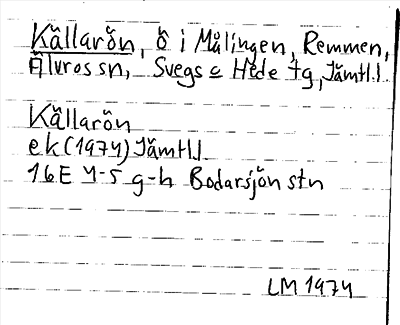 Källarön, ö i Målingen, Remmen,
Älvros sn, Svegs o Hede tg, Jämtl.l
Källarön
ek (1974) Jämtl.l
16E 4-5 g-h Bodarsjön stn
LM 1974